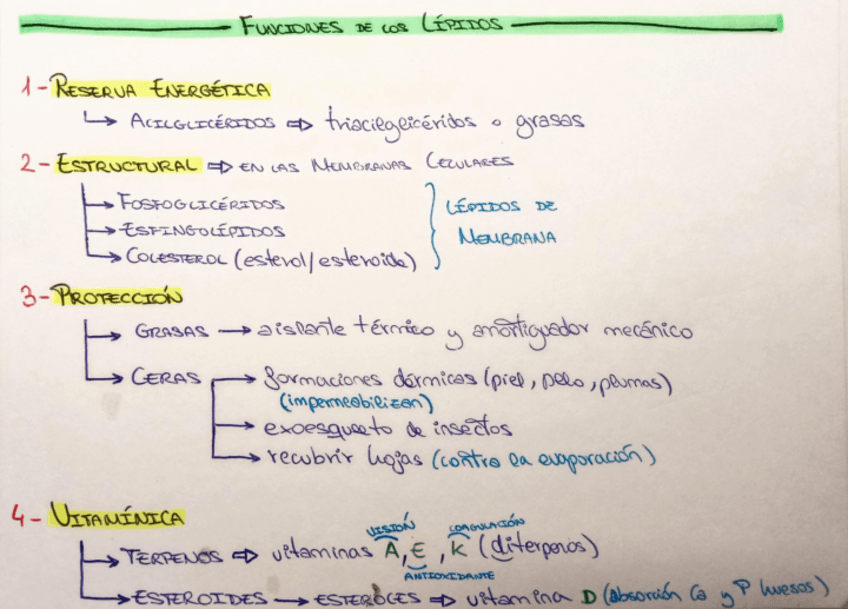 FUNCIONES DE LOS LÍPIDOS
1- RESERVA ENERGÉTICA
↳ ACILGLICÉRIDOS ⇒ triacilglicéridos o grasas
2- ESTRUCTURAL ⇒ EN LAS MEMBRANAS CELULARES
→ FOSFOGLICÉRIDOS
→ ESFINGOLÍPIDOS
→ COLESTEROL (esterol/esteroide)
LÍPIDOS DE
MEMBRANA
3- PROTECCIÓN
→ GRASAS → aislante térmico y amortiguador mecánico
→ CERAS → formaciones dérmicas (piel, pelo, plumas)
(impermeabilizan)
→ exoesqueleto de insectos
→ recubrir hojas (contra la evaporación)
4- VITAMÍNICA
VISIÓN COAGULACIÓN
→ TERPENOS ⇒ vitaminas A, E, K (diterpenos)
ANTIOXIDANTE
→ ESTEROIDES → ESTEROLES ⇒ vitamina D (absorción Ca y P huesos)